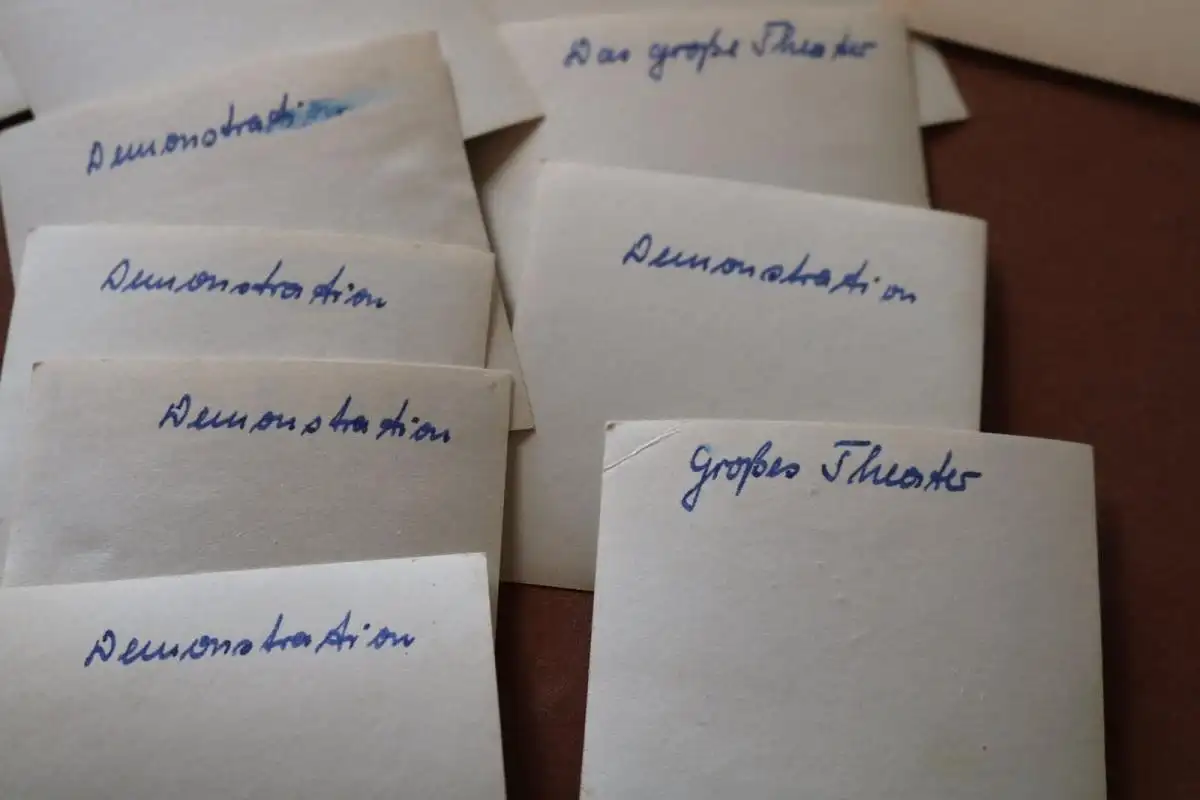 Das große Theater
Demonstration
Demonstration
Demonstration
Demonstration
Großes Theater
Demonstration